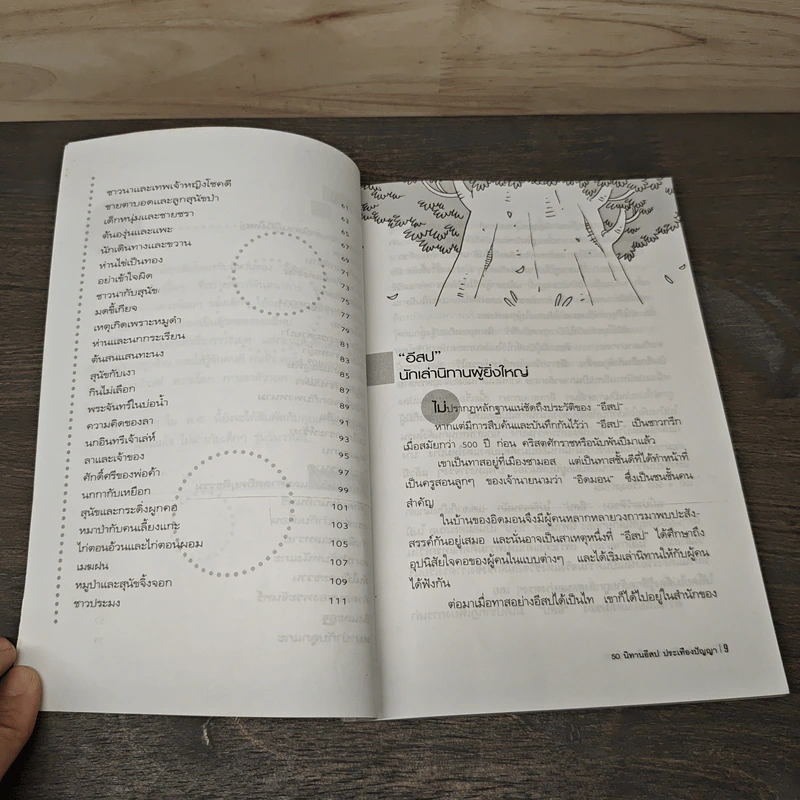 ชาวนาและเทพเจ้าหญิงโชคดี 61
ชายตาบอดและลูกสุนัขป่า 62
เด็กหนุ่มและชายชรา 65
ต้นองุ่นและแพะ 67
นักเดินทางและขวาน 69
ห่านไข่เป็นทอง 71
อย่าเข้าใจผิด 73
ชาวนากับสุนัข 75
มดขี้เกียจ 77
เหตุเกิดเพราะหมูดำ 79
ห่านและนกกระเรียน 81
ต้นสนแสนทะนง 83
สุนัขกับเงา 85
กินไม่เลือก 87
พระจันทร์ในบ่อน้ำ 89
ความคิดของลา 91
นกอินทรีเจ้าเล่ห์ 93
ลาและเจ้าของ 95
ศักดิ์ศรีของพ่อค้า 97
นกกากับเหยือก 99
สุนัขและกระดิ่งผูกคอ 101
หมาป่ากับคนเลี้ยงแกะ 103
ไก่ตอนอ้วนและไก่ตอนผอม 105
เมฆฝน 107
หมูป่าและสุนัขจิ้งจอก 109
ชาวประมง 111
“อีสป”
นักเล่านิทานผู้ยิ่งใหญ่
ไม่ปรากฏหลักฐานแน่ชัดถึงประวัติของ “อีสป”
หากแต่มีการสืบค้นและบันทึกกันไว้ว่า “อีสป” เป็นชาวกรีก
เมื่อสมัยกว่า 500 ปี ก่อน คริสตศักราชหรือนับพันปีมาแล้ว
เขาเป็นทาสอยู่ที่เมืองซามอส แต่เป็นทาสชั้นดีที่ได้ทำหน้าที่
เป็นครูสอนลูกๆ ของเจ้านายนามว่า “อิดมอน” ซึ่งเป็นชนชั้นคน
สำคัญ
ในบ้านของอิดมอนจึงมีผู้คนหลากหลายวงการมาพบปะสัง-
สรรค์กันอยู่เสมอ และนั่นอาจเป็นสาเหตุหนึ่งที่ “อีสป” ได้ศึกษาถึง
อุปนิสัยใจคอของผู้คนในแบบต่างๆ และได้เริ่มเล่านิทานให้กับผู้คน
ได้ฟังกัน
ต่อมาเมื่อทาสอย่างอีสปได้เป็นไท เขาก็ได้ไปอยู่ในสำนักของ
50 นิทานอีสป ประเทืองปัญญา | 9